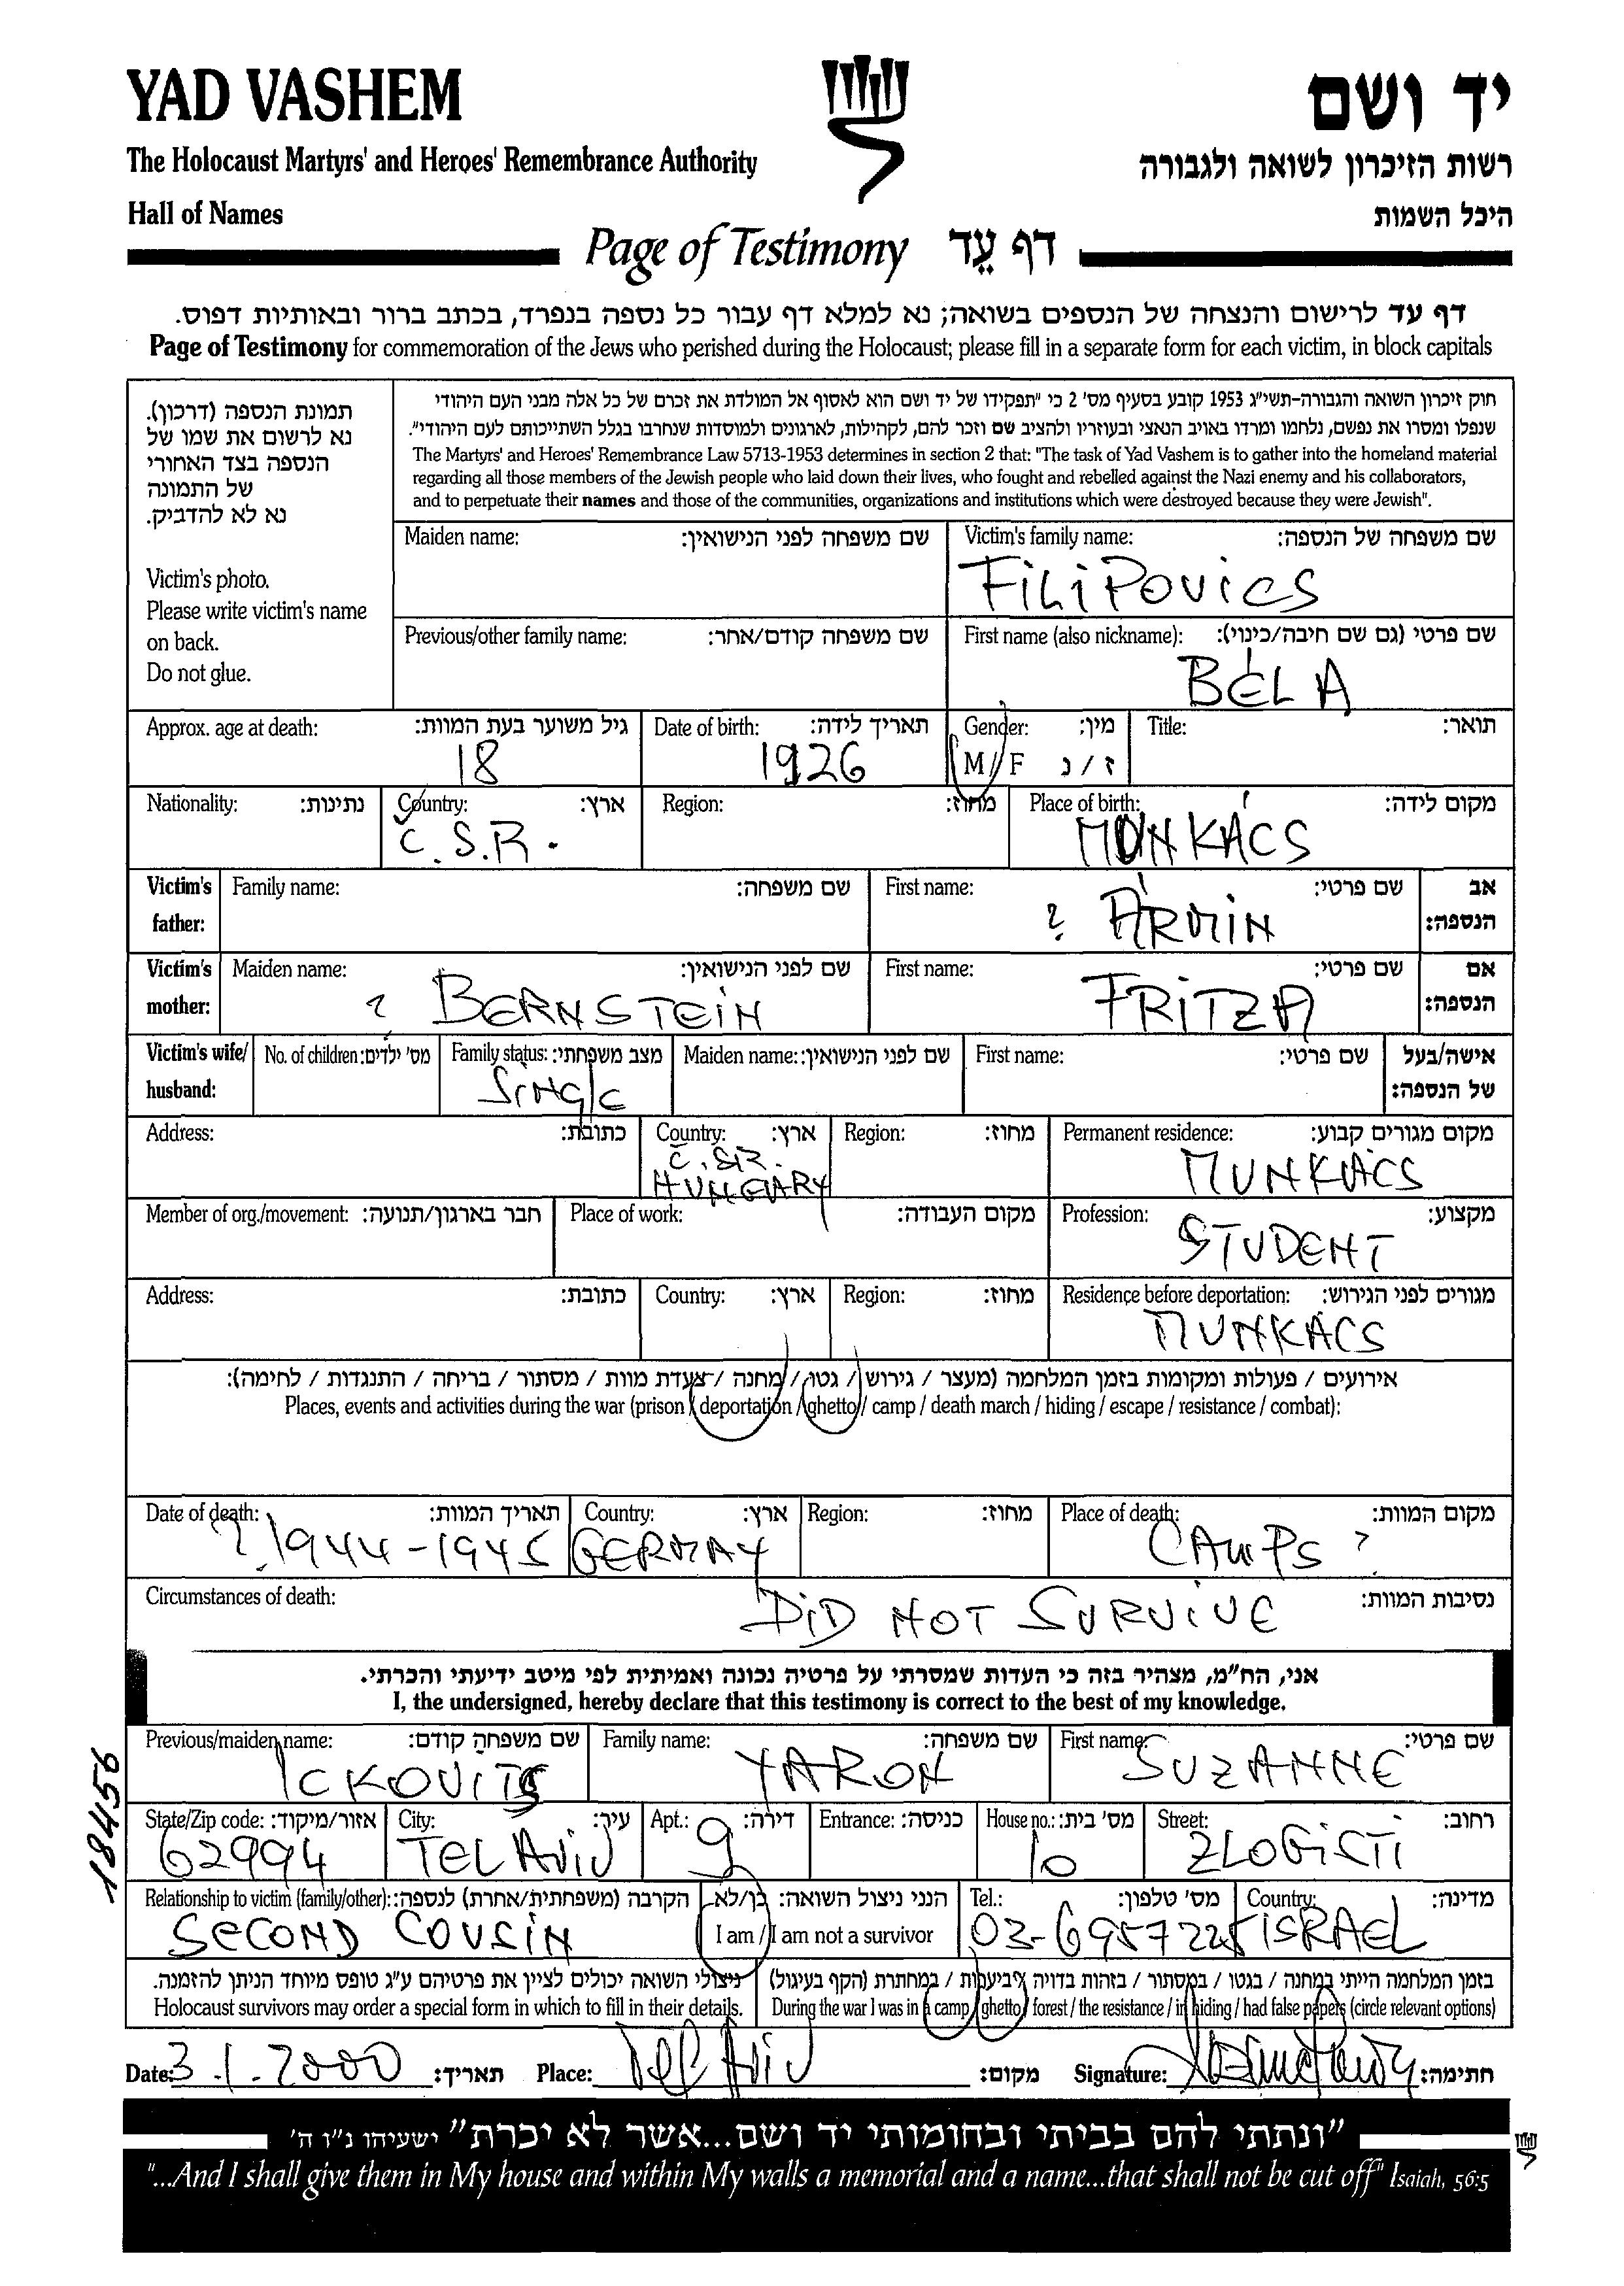 YAD VASHEM
יד ושם
The Holocaust Martyrs' and Heroes' Remembrance Authority
רשות הזיכרון לשואה ולגבורה
Hall of Names
היכל השמות
Page of Testimony דף עֵד
דף עד לרישום והנצחה של הנספים בשואה; נא למלא דף עבור כל נספה בנפרד, בכתב ברור ובאותיות דפוס.
Page of Testimony for commemoration of the Jews who perished during the Holocaust; please fill in a separate form for each victim, in block capitals
תמונת הנספה (דרכון).
נא לרשום את שמו של
הנספה בצד האחורי
של התמונה
נא לא להדביק.
Victim's photo.
Please write victim's name
on back.
Do not glue.
חוק זיכרון השואה והגבורה-תשי"ג 1953 קובע בסעיף מס' 2 כי "תפקידו של יד ושם הוא לאסוף אל המולדת את זכרם של כל אלה מבני העם היהודי
שנפלו ומסרו את נפשם, נלחמו ומרדו באויב הנאצי ובעוזריו ולהציב שם וזכר להם, לקהילות, לארגונים ולמוסדות שנחרבו בגלל השתייכותם לעם היהודי".
The Martyrs' and Heroes' Remembrance Law 5713-1953 determines in section 2 that: "The task of Yad Vashem is to gather into the homeland material
regarding all those members of the Jewish people who laid down their lives, who fought and rebelled against the Nazi enemy and his collaborators,
and to perpetuate their names and those of the communities, organizations and institutions which were destroyed because they were Jewish".
Maiden name: שם משפחה לפני הנישואין:
Victim's family name: שם משפחה של הנספה:
FILIPOVICS
Previous/other family name: שם משפחה קודם/אחר:
First name (also nickname): שם פרטי (גם שם חיבה/כינוי):
BÉLA
Approx. age at death: גיל משוער בעת המוות:
18
Date of birth: תאריך לידה:
1926
Gender: מין:
M / F ז / נ
Title: תואר:
Nationality: נתינות:
Country: ארץ:
Č.S.R.
Region: מחוז:
Place of birth: מקום לידה:
MUNKÁCS
Victim's father:
Family name: שם משפחה:
First name: שם פרטי:
? ÁRMIN
אב הנספה:
Victim's mother:
Maiden name: שם לפני הנישואין:
? BERNSTEIN
First name: שם פרטי:
FRITZA
אם הנספה:
Victim's wife/ husband:
No. of children: מס' ילדים:
Family status: מצב משפחתי:
SINGLE
Maiden name: שם לפני הנישואין:
First name: שם פרטי:
אישה/בעל של הנספה:
Address: כתובת:
Country: ארץ:
Č.S.R.
HUNGARY
Region: מחוז:
Permanent residence: מקום מגורים קבוע:
MUNKÁCS
Member of org./movement: חבר בארגון/תנועה:
Place of work: מקום העבודה:
Profession: מקצוע:
STUDENT
Address: כתובת:
Country: ארץ:
Region: מחוז:
Residence before deportation: מגורים לפני הגירוש:
MUNKÁCS
אירועים / פעולות ומקומות בזמן המלחמה (מעצר / גירוש / גטו / מחנה / צעדת מוות / מסתור / בריחה / התנגדות / לחימה):
Places, events and activities during the war (prison / deportation / ghetto / camp / death march / hiding / escape / resistance / combat):
Date of death: תאריך המוות:
?. 1944-1945
Country: ארץ:
GERMAY
Region: מחוז:
Place of death: מקום המוות:
CAMPS ?
Circumstances of death: נסיבות המוות:
DID NOT SURVIVE
אני, הח"מ, מצהיר בזה כי העדות שמסרתי על פרטיה נכונה ואמיתית לפי מיטב ידיעתי והכרתי.
I, the undersigned, hereby declare that this testimony is correct to the best of my knowledge.
Previous/maiden name: שם משפחה קודם:
ICKOVITS
Family name: שם משפחה:
YARON
First name: שם פרטי:
SUZANNE
State/Zip code: אזור/מיקוד:
62994
City: עיר:
TEL AVIV
Apt.: דירה:
9
Entrance: כניסה:
House no.: מס' בית:
10
Street: רחוב:
ZLOGISTI
Relationship to victim (family/other): הקרבה (משפחתית/אחרת) לנספה:
SECOND COUSIN
הנני ניצול השואה: כן/לא
I am / I am not a survivor
Tel.: מס' טלפון:
03-6957225
Country: מדינה:
ISRAEL
ניצולי השואה יכולים לציין את פרטיהם ע"ג טופס מיוחד הניתן להזמנה.
Holocaust survivors may order a special form in which to fill in their details.
בזמן המלחמה הייתי במחנה / בגטו / במסתור / בזהות בדויה / ביערות / במחתרת (הקף בעיגול)
During the war I was in a camp / ghetto / forest / the resistance / in hiding / had false papers (circle relevant options)
Date: 3.1.2000 תאריך:
Place: Tel Aviv מקום:
Signature: חתימה:
"ונתתי להם בביתי ובחומותי יד ושם...אשר לא יכרת" ישעיהו נ"ו ה'
"...And I shall give them in My house and within My walls a memorial and a name...that shall not be cut off" Isaiah, 56:5
18456